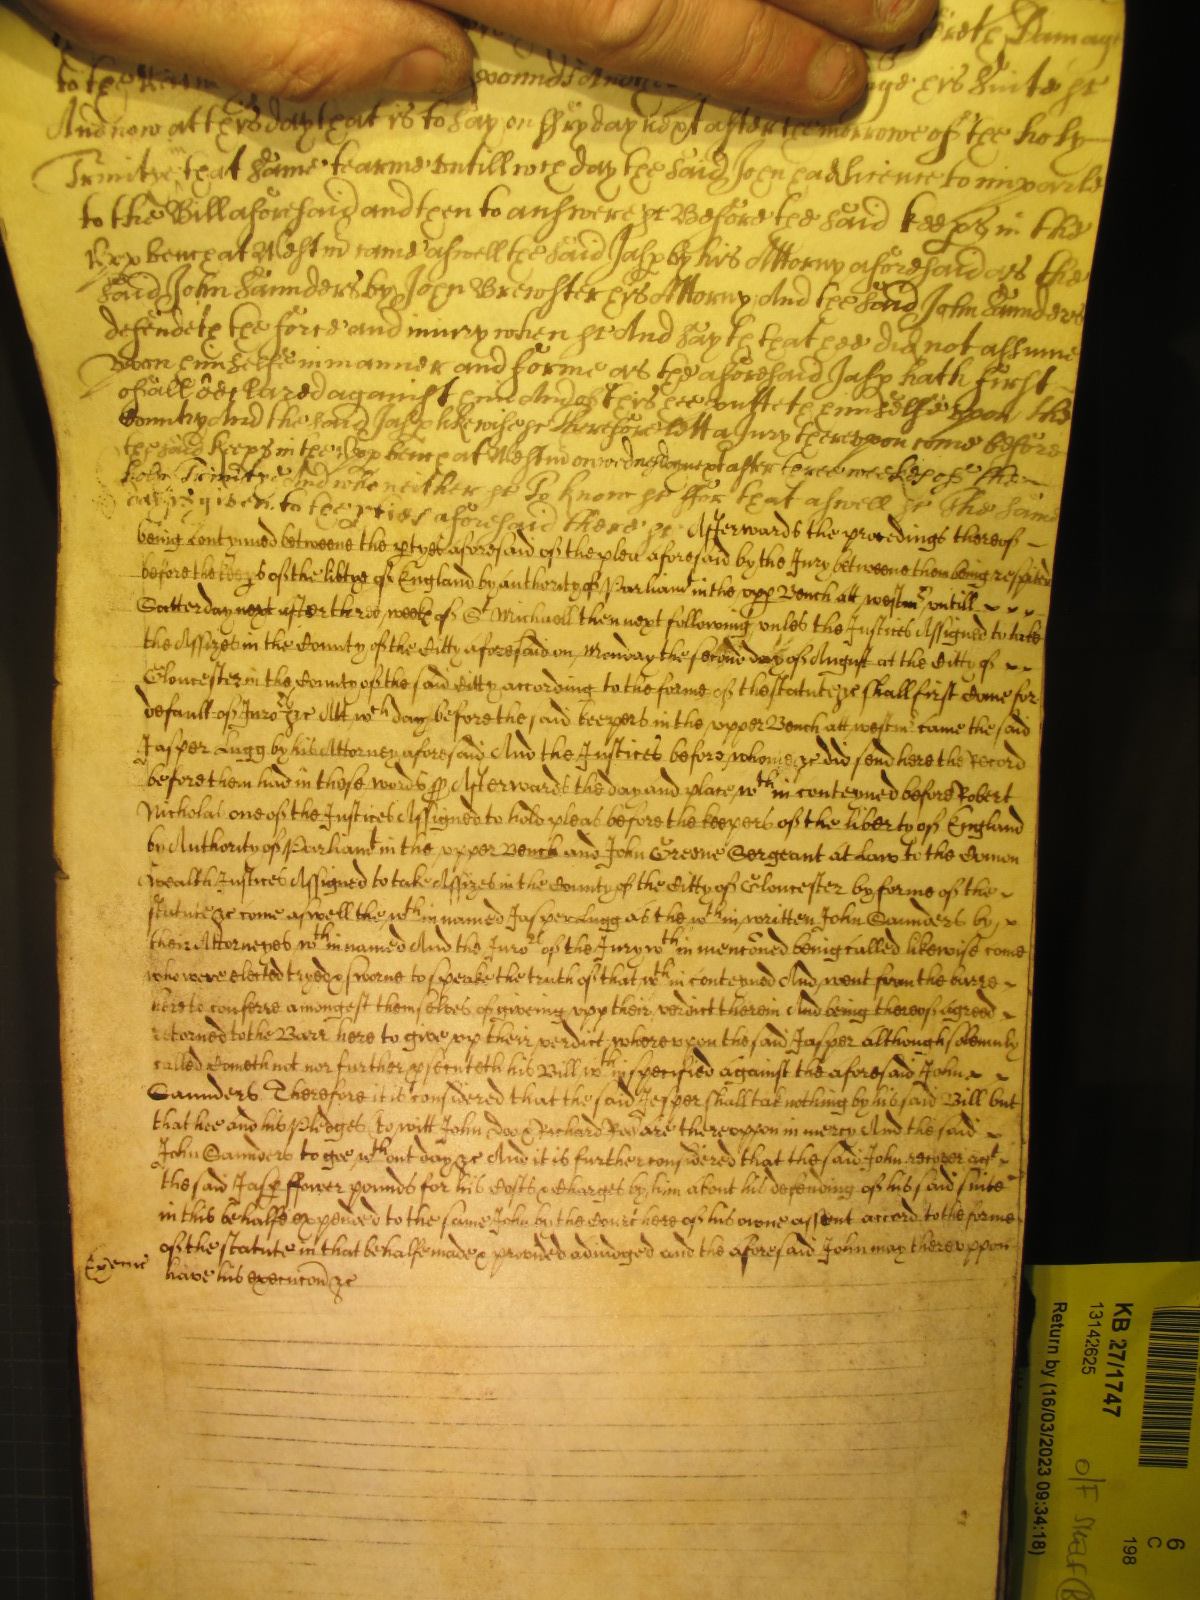 Damage
to the pounds And
his suite &c
And now at this day that is to say on ffryday next after the morrowe of the holy
Trinitye that same tearme untill wch day the said John had licence to imparle
to the Bill aforesaid and then to answere &c Before the said keeps in the
upp bench at Westmr came aswell the said Jasp by his Attorny aforesaid as the
said John Saunders by John Brewster his Attorny And the said John Saunders
defendeth the force and iniury when &c And sayth that hee did not assume
upon himselfe in manner and forme as the aforesaid Jasp hath first
of all declared against him And of this hee putteth himselfe upon the
Country And the said Jasp likewise &c Therefore lett a Jury thereupon come before
the said keeps in the upp bench at Westmr on wednesday next after three weekes of the
holy Trinitye And who neither &c To know &c ffor that aswell &c The same
day is given to the pties aforesaid there &c Afterwards the procedings thereof
being contynued betweene the ptyes aforesaid of the plea aforesaid by the Jury betweene them being respited
before the keeps of the libtye of England by authority of Parliamt in the upp Bench att westmr untill
Satterday next after three weeks of St Michaell then next following unles the Justices Assigned to take
the Assizes in the County of the Citty aforesaid on Monday the second day of August at the Citty of
Gloucester in the County of the said Citty according to the forme of the statute &c shall first Come for
default of Juro:rs &c Att wch day before the said keepers in the upper Bench att westmr came the said
Jasper Lugg by his Attorney aforesaid And the Justices before whome &c did send here the Record
before them had in these words ss Afterwards the day and place wthin conteyned before Robert
Nicholas one of the Justices Assigned to hold pleas before the keepers of the liberty of England
by Authority of Parliamt in the upper Bench and John Greene Sergeant at Law to the Comon
wealth Justices Assigned to take Assizes in the County of the Citty of Gloucester by forme of the
statute &c come aswell the wthin named Jasper Lugg as the wthin written John Saunders by
their Attorneyes wthin named And the Juro:rs of the Jury wthin menconed being called likewise come
who were elected tryed & sworne to speake the truth of that wthin conteyned And went from the barre
here to conferre amongest themselves of giveing upp their verdict therein And being thereof agreed
retorned to the Barr here to give up their verdict whereupon the said Jasper although solemnly
called Cometh not nor further psecuteth his Bill wthin specified against the aforesaid John
Saunders Therefore it is considered that the said Jasper shall take nothing by his said Bill but
that hee and his Pledges to witt John Doo & Richard Roo are thereuppon in mercy And the said
John Saunders to goe wthout day &c And it is further considered that the said John recover agt
the said Jasp ffower pounds for his Costs & Charges by him about his defending of his said suite
in this behalfe expended to the same John by the Court here of his owne assent accord to the forme
of the statute in that behalfe made & provided adiudged and the aforesaid John may thereuppon
have his execucon &c
KB 27/1747
13142625
Return by (16/03/2023 09:34:18)
6
C
198